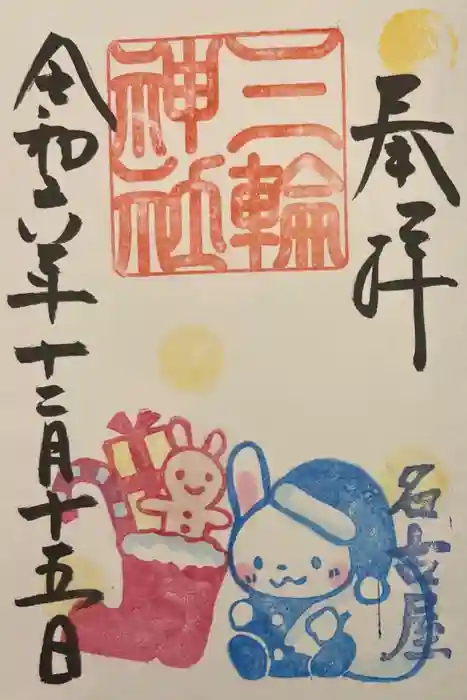 奉拝
三輪
神社
名古屋
令和六年十二月十五日